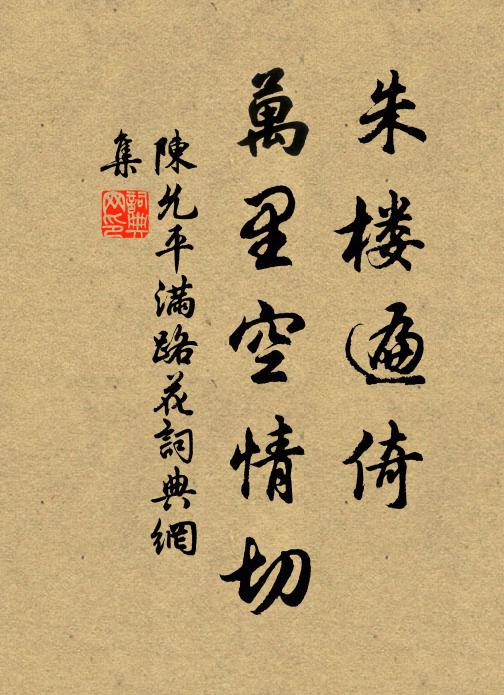 朱楼遍倚
萬里空情切
陳允平滿路花詞典網
集
詞典網印